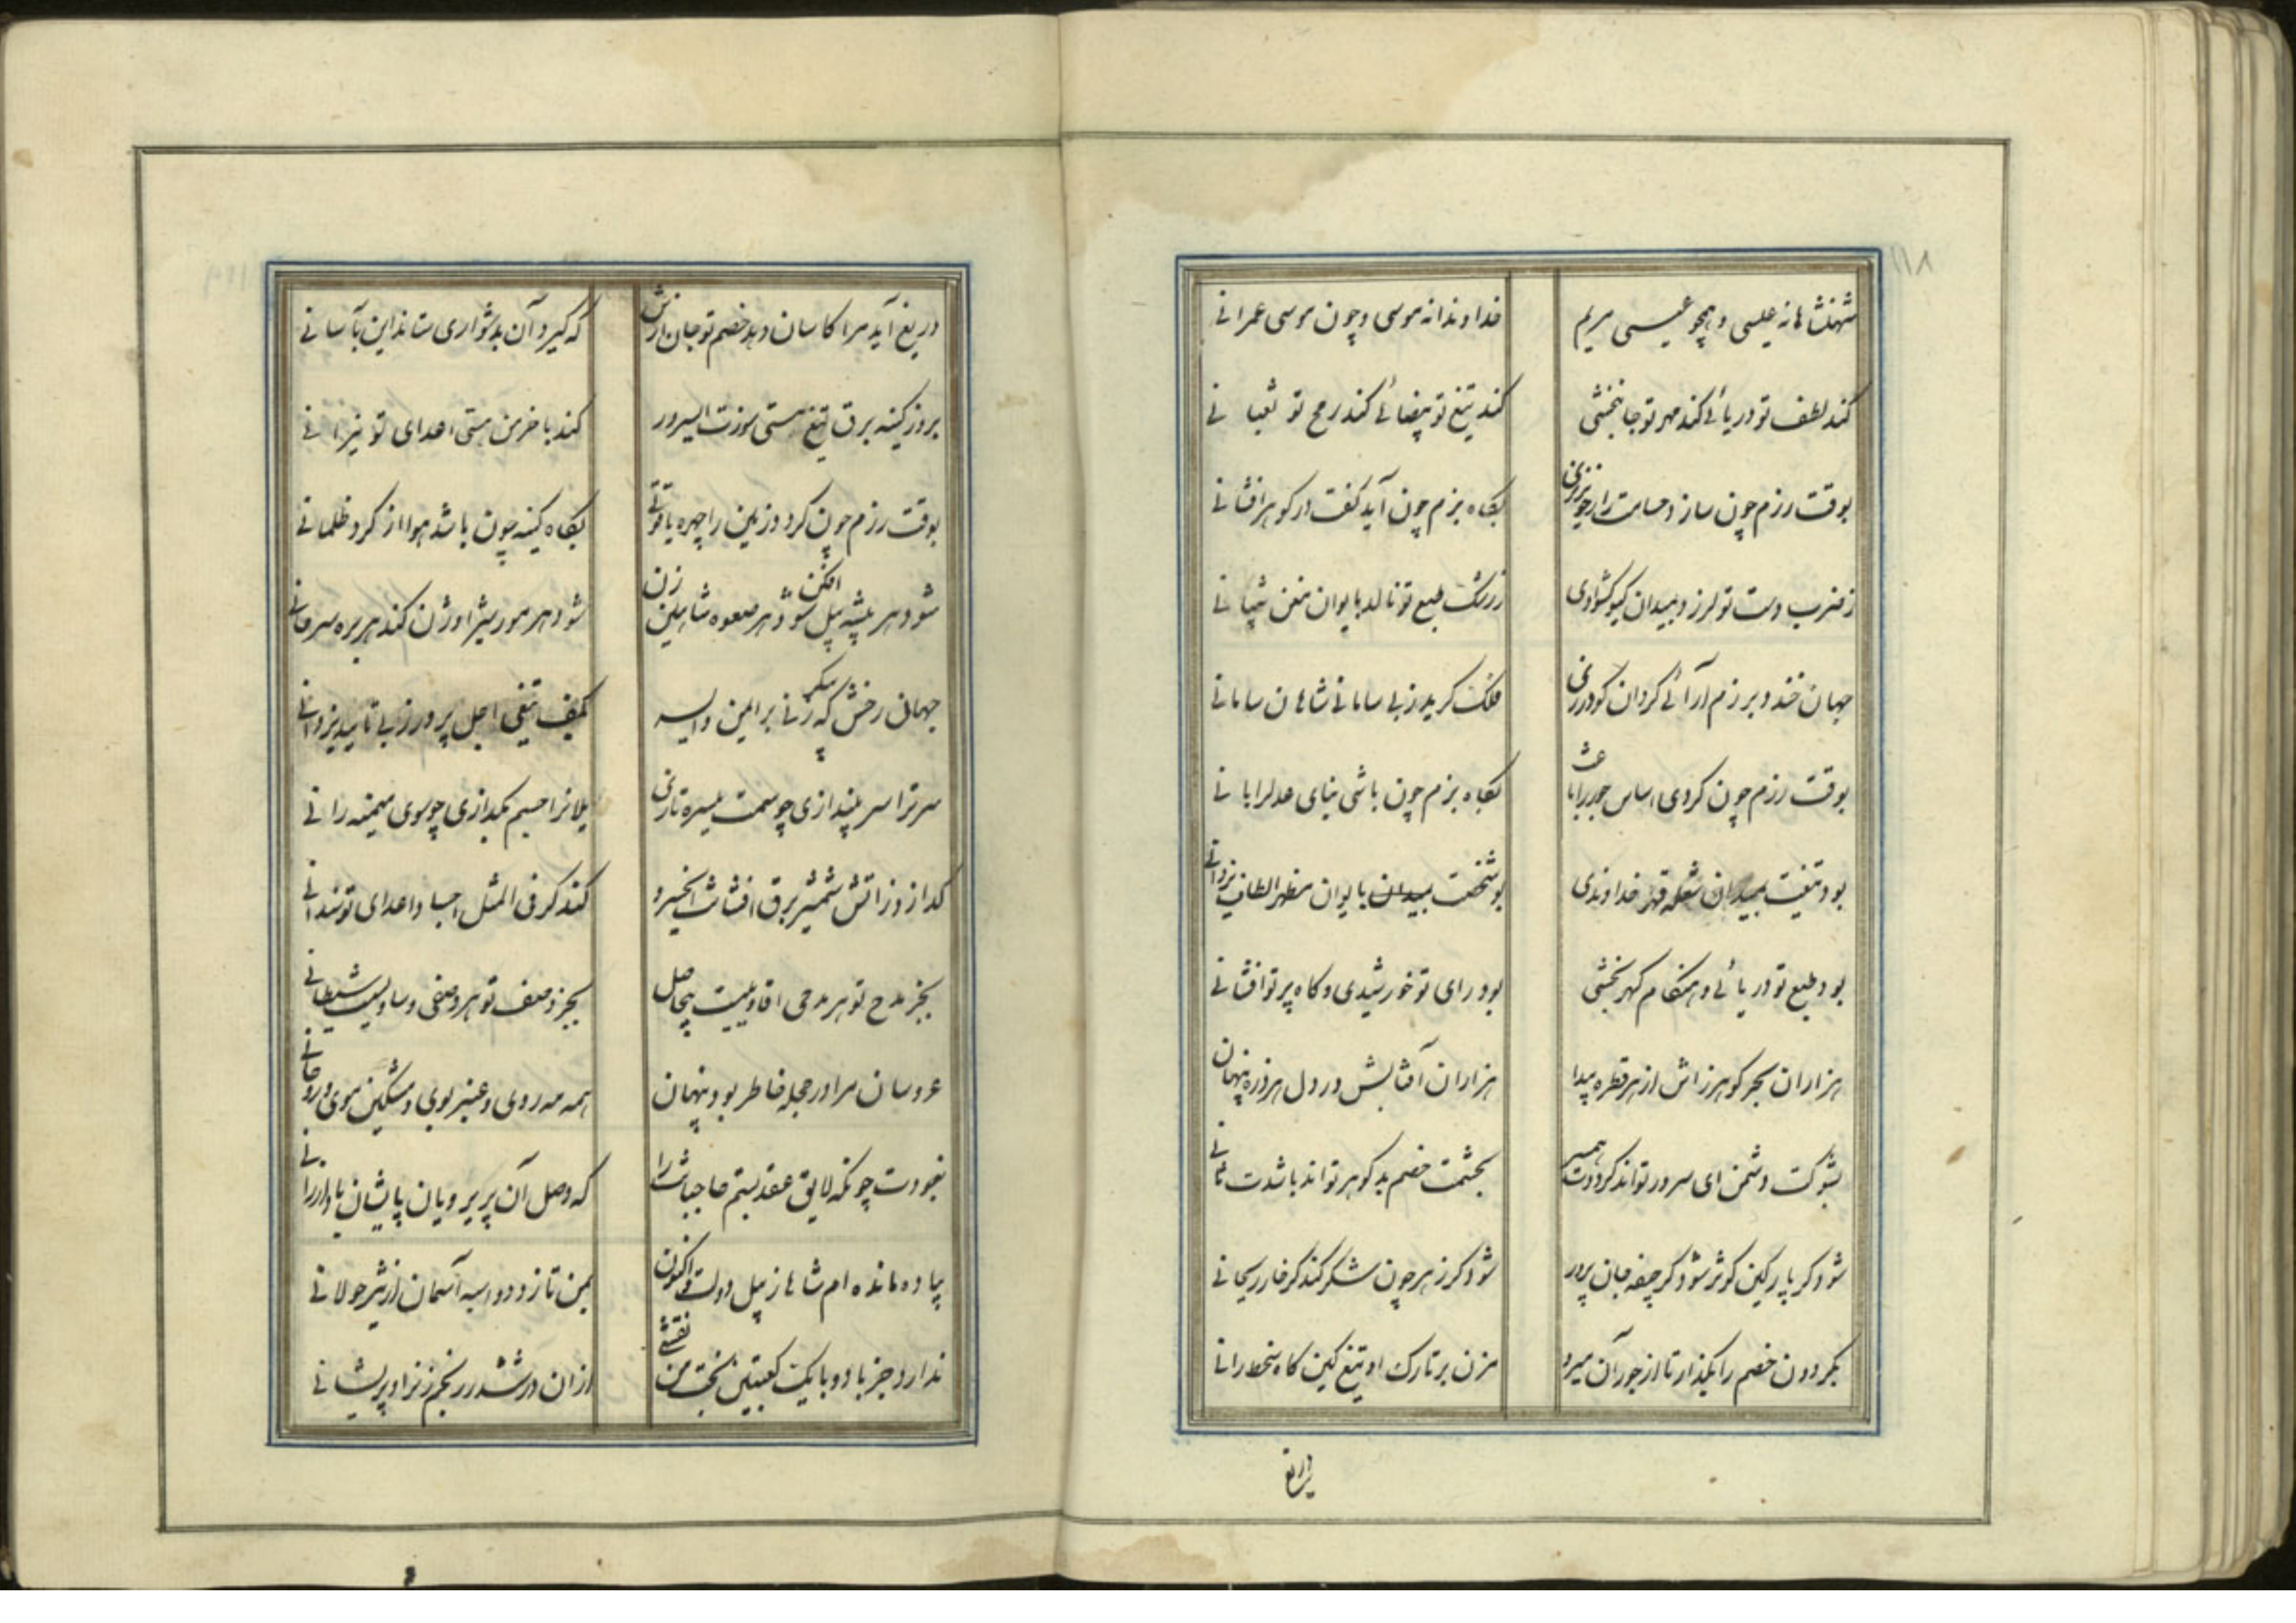 شهنشاها نه عیسی و همچو عیسی مریم
خداوندا نه موسی و چون موسی عمرانی
کند لطف تو دریائی کند مهر تو جانبخشی
کند تیغ تو بیضائی کند رمح تو ثعبانی
بوقت رزم چون سازد حسامت رای خونریزی
بگاه بزم چون آید کفت در گوهر افشانی
ز ضرب دست تو لرزد بمیدان گیو گشوادی
ز رشک طبع تو نالد بایوان معن شیبانی
جهان خندد برزم آرائی گردان گودرزی
فلک گرید ز بی سامانی شاهان سامانی
بوقت رزم چون گردی اساس جور را باعث
بگاه بزم چون باشی بنای عدل را بانی
بود تیغت بمیدان شعله قهر خداوندی
بود شخصت بمیدان بایوان مظهر الطاف یزدانی
بود طبع تو دریائی و هنگام گهر بخشی
بود رای تو خورشیدی و گاه پرتو افشانی
هزاران بحر گوهرزاش از هر قطره پیدا
هزاران آفتابش در دل هر ذره پنهانی
بشوکت دشمن ای سرور تواند کردت همسر
بحشمت خصم بد گوهر تواند باشدت ثانی
شود گر پارگین کوثر شود گر جیفه جان پرور
شود گر زهر چون شکر کند گر خار ریحانی
بگردون خصم را بگذار تا از جور آن میرد
مزن بر تارک او تیغ کین گاه سخط رانی
دریغ
دریغ آید مرا کاسان دهد خصم تو جان ارزش
که گیرد آن بدشواری ستاند این بآسانی
بروز کینه برق تیغ هستی سوزت ای سرور
کند با خرمن هستی اعدای تو نیرانی
بوقت رزم چون گردد زمین را چهره یاقوتی
بگاه کینه چون باشد هوا از گرد ظلمانی
شود هر پشه پیل افکن شود هر صعوه شاهین زن
شود هر مور شیر اوژن کند هر بره سرحانی
جهان رخش که پیکر
بکف تیغی اجل پرور ز بی تایید یزدانی
سرترا سر بیندازی چو سمت میسره تازی
یلانرا جسم بگدازی چو سوی میمنه رانی
گدازد ز آتش شمشیر برق افشانت ای خسرو
کند گر فی المثل اجساد اعدای تو سندانی
بجز مدح تو هر مدحی اقاویلیست بیحاصل
بجز وصف تو هر وصفی وساویسیست شیطانی
عروسان مرا در حجله خاطر بود پنهان
همه مه روی و عنبر بوی و مشکین موی و روحانی
نبودت چونکه لایق عقد بستم
که وصل آن پریرویان
پیاده مانده ام شاها ز پیل دولت و اکنون
بمن تازد دو اسبه آسمان از شیر جولانی
ندارد جز با دو با یک کعبتین بخت من نقشی
از آن در ششدر رنجم ز نراد پریشانی